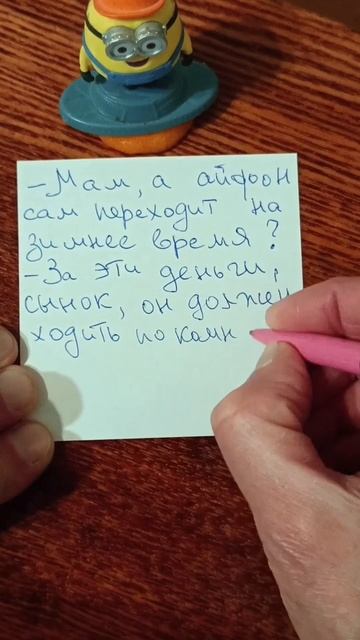 - Мам, а айфон
сам переходит на
зимнее время?
- За эти деньги,
сынок, он должен
ходить по камн